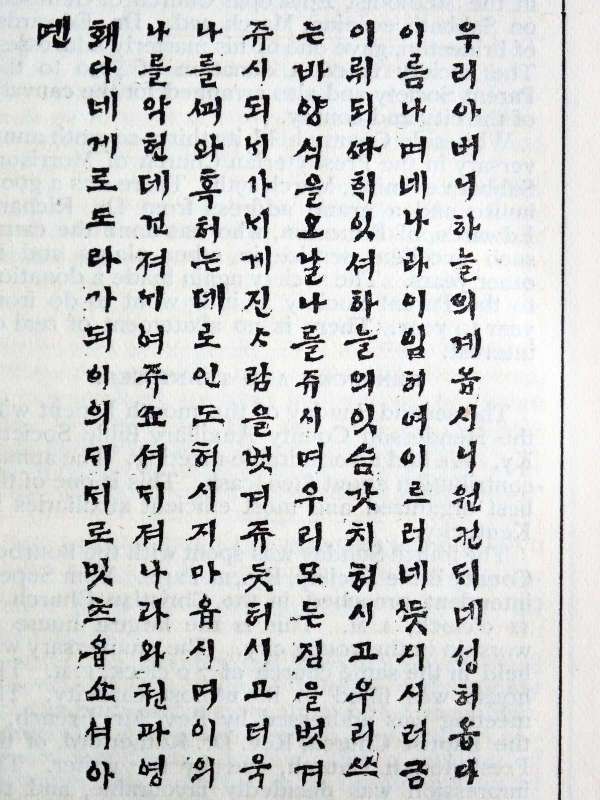 우리아버니하늘의계옵시니원컨되네성허옵다
이름나며네나라이임허여이르러네뜻시시러금
이뤄되ᄯᅡ희잇셔하늘의잇슴갓치허시고우리쓰
는바양식을오날나를쥬시며우리모든짐을벗겨
쥬시되늬가늬게진ᄉᆞ람을벗겨쥬듯허시고더욱
나를ᄭᅬ와후허는데로인도허시지마옵시며이의
나를악헌데건져ᄭᅵ여쥬쇼셔듸져나라와권과영
홰다네게로도라가되이의듸듸로밋츠옵쇼셔아
멘